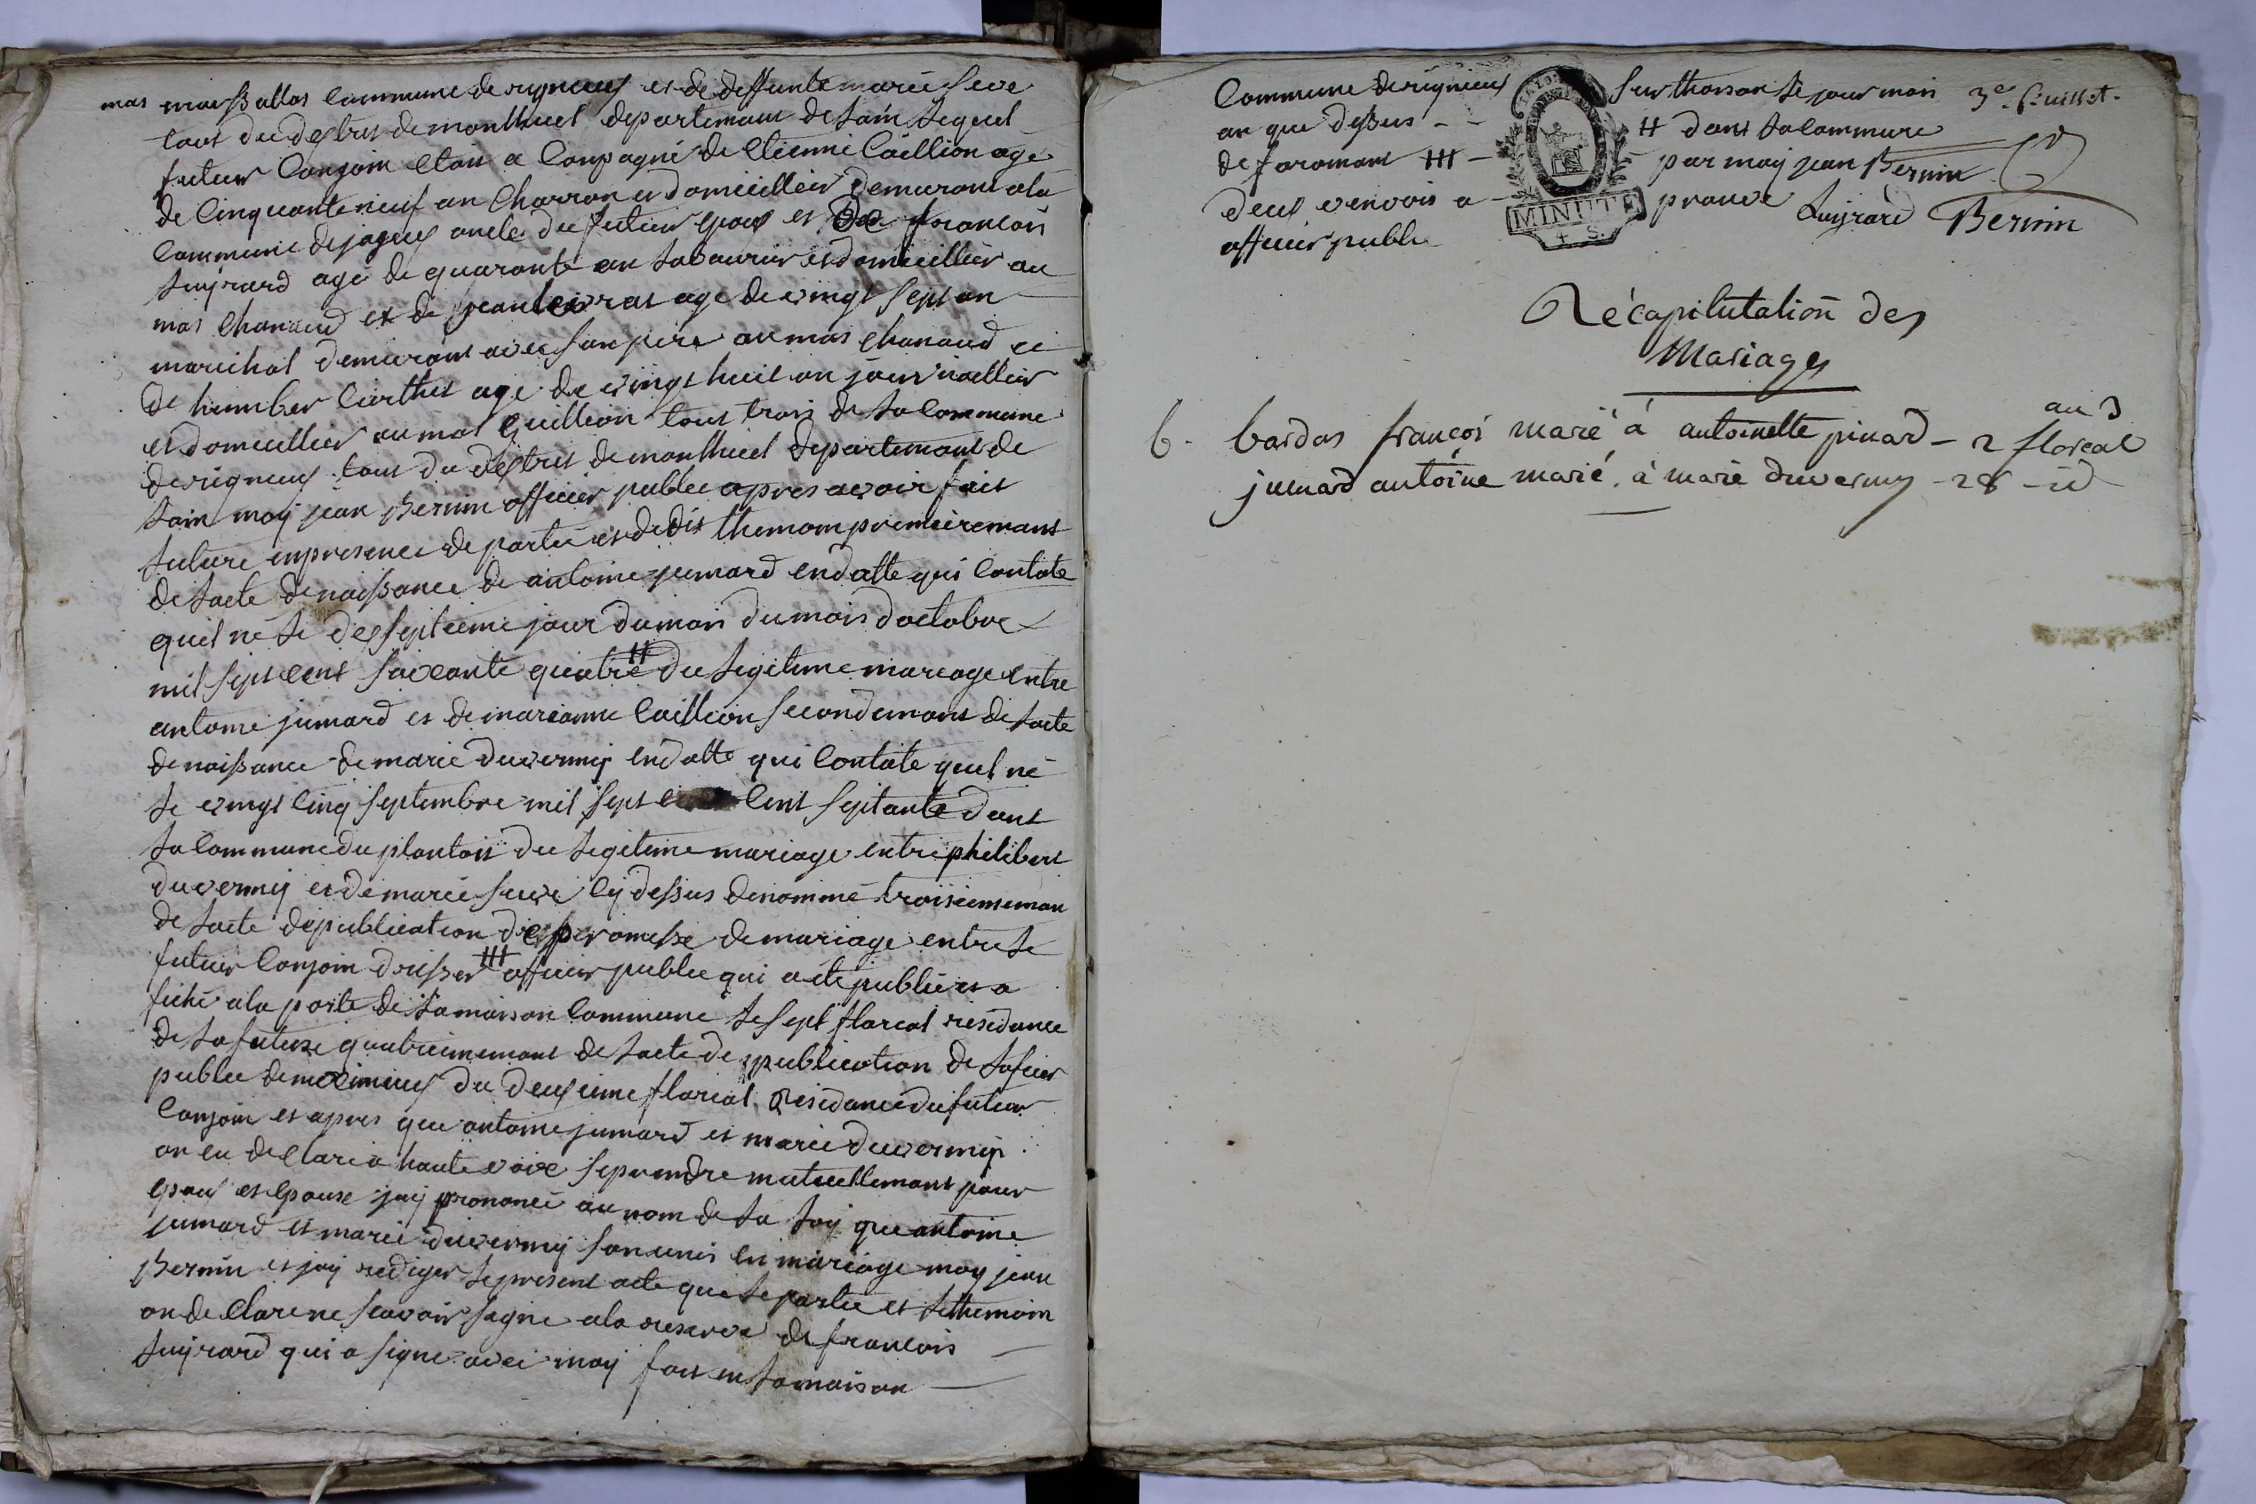 mas massallas commune de rigneux et de deffunte marie seve
tous du destrit de montluel departemant de lain lequel
futur conjoin etois a compagné de etienne Caillion agé
de cinquante neuf an charron et domicillier demurant a la
commune dejogues oncle du futur epoux et de francois
luyrard agé de quarante an laboureur et domicillier au
mas chanaud et de jean levrat age de vingt sept an
marichal demurant avec son pere au mas chanaud et
de humber Curthet age de vingt huit an journallier
et domicillier au mas quillion tous trois de la commune
de rigneux tous du destrit de montluel departemant de
lain moy jean Bernin officier public apres avoir fait
lecture en presence de partie et dedit themom premieremant
de lacte de naissance de antoine jumard en datte qui contate
quil né le dessepteme jour du mois du mois doctobre
mil sept cent soixante quatre # du legitime mariage entre
antoine jumard et de marianne Caillion secondemant de lacte
de naissance de marie duvermy en datte qui contate quel né
le vingt cinq septembre mil sept cent septante dans
la commune du plantois du legitime mariage entre philibert
duvermy et de marie seve cy dessus denommé troisiememan
de lacte de publication de promesse de mariage entre le
futur conjoin dresser ### officier public qui a été publié et a
fiché a la porte de la maison commune le sept floreal residance
de la future quatriememant de lacte de publication de lofficier
public demeximieux du deuxieme floreal residance du futur
conjoin et apres que antoine jumard et marie duvermy
on eu declaré a haute voix seprendre mutuellemant pour
epoux et epouse jay prononcé au nom de la loy que antoine
jumard et marie duvermy son unis en mariage moy jean
Bernin et jay rediger le present acte que le partie et lethemoin
on declare ne scavoir signe a la reserve de francois
luyrard qui a signe avec moy fait en la maison
Commune de rignieux sur thoison le jour mois 3e feuillet.
an que dessus - - # dans la commune
de faramant ### - par moy jean Bernin
deux renvois a prouve luyrard Bernin
officier public
MINUTE
4 S.
Récapitulation des
Mariages
au 3
6. bardas françois marié à antoinette pinard - 2 floreal
jumard antoine marié à marie duvermy - 28 - id